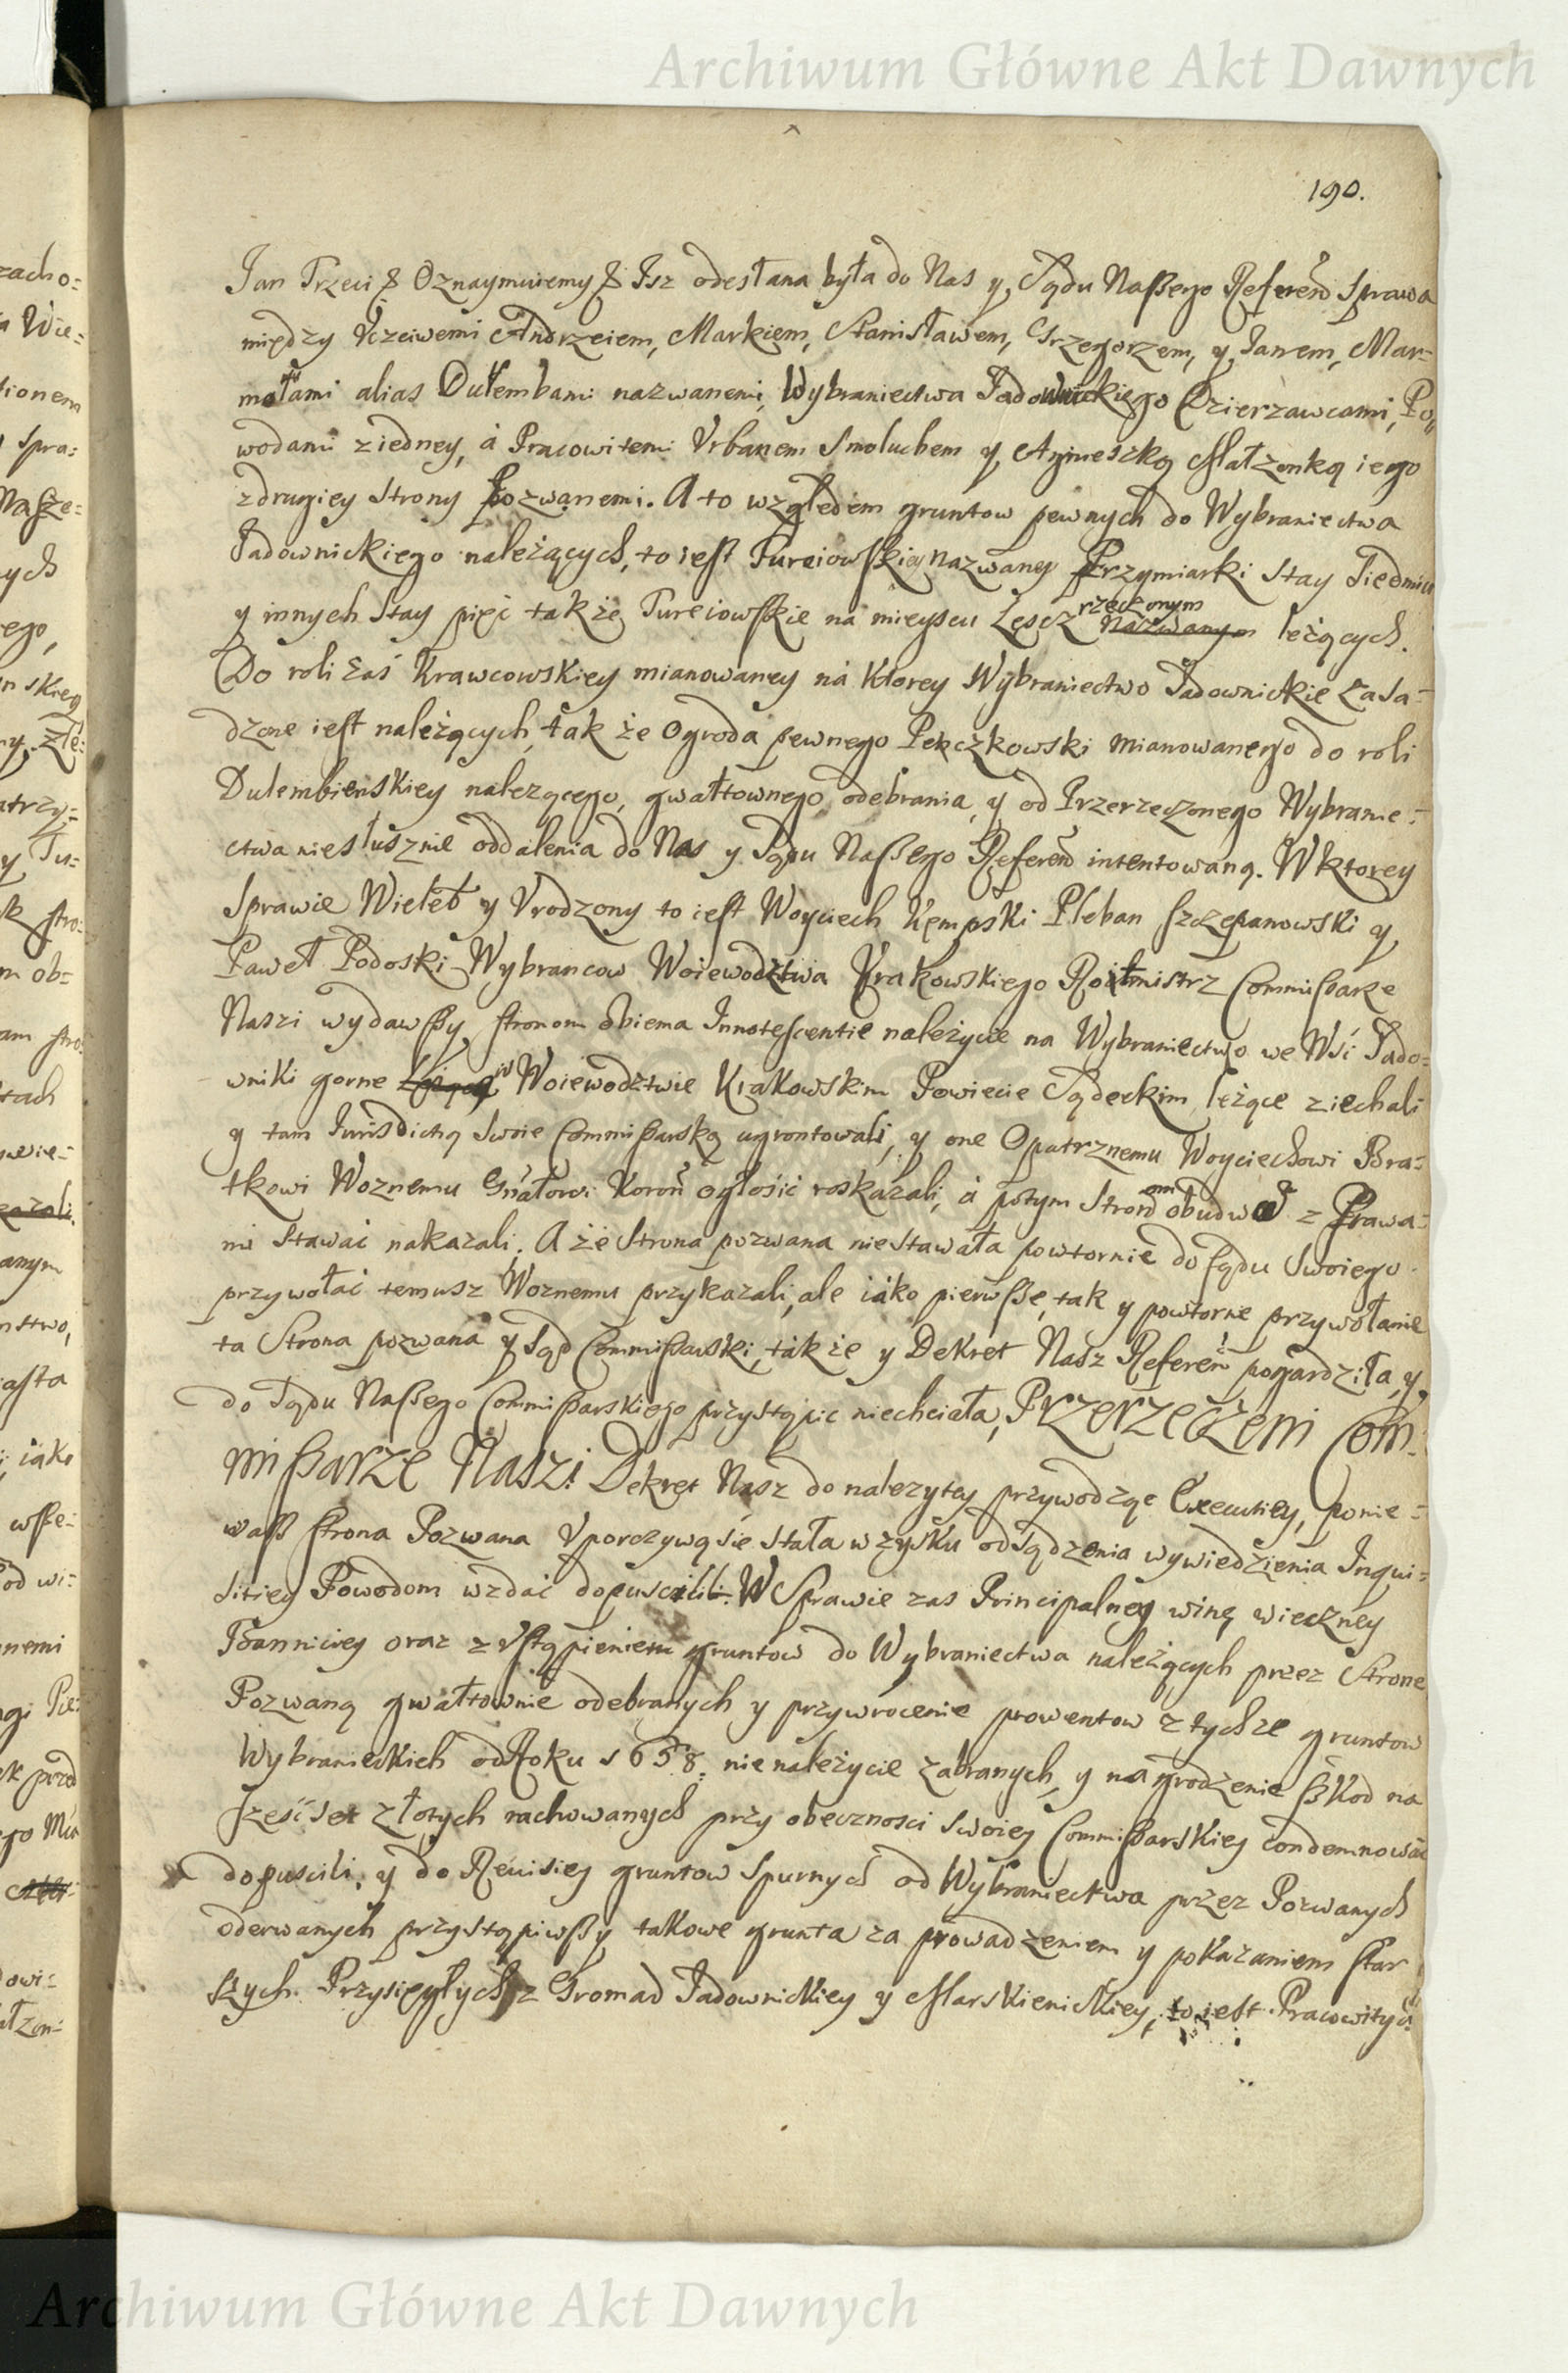 Archiwum Główne Akt Dawnych
190.
Jan Trzeci & Oznaymuiemy & Isz odesłana była do Nas y Sądu Naszego Referen̄ Sprawa
między Vczciwemi Andrzeiem, Markiem, Stanisławem, Grzegorzem, y Janem, Mar=
małami alias Dułembami nazwanemi, Wybraniectwa Jadownickiego Dzierzawcami, Po=
wodami z iedney, á Pracowitemi Vrbanem Smoluchem y Agnieszką Małzonką iego
z drugiey Strony Pozwanemi. A to względem gruntow pewnych do Wybraniectwa
Jadownickiego należących, to iest Turciowskiey nazwaney Przymiarki Stay Siedmiu
y innych Stay pięć także Turciowskie na mieyscu Łęscz rzeczonym nazwanym leżących.
Do roli zaś Krawcowskiey mianowaney ná Ktorey Wybraniectwo Jadownickie zasa=
dzone iest należących, tak że Ogroda pewnego Penczkowski mianowanego do roli
Dulembienskiey nalezącego, gwałtownego odebrania, y od Przerzeczonego Wybranie=
ctwa niesłusznie oddalenia do Nas y Sądu Naszego Referen̄ intentowaną. W ktorey
Sprawie Wieleb y Vrodzony to iest Woyciech Kempski Pleban Szczepanowski y
Paweł Podoski Wybrancow Woiewodztwa Krakowskiego Rotmistrz Commissarze
Naszi wydawszy stronom obiema Innotescentie należycie na Wybraniectwo we Wśi Jado=
wniki gorne w Woiewodztwie Krakowskim Powiecie Sądeckim leżące ziechali
y tam Jurisdictią Swoie Commissarską ugrontowali, y one Opatrznemu Woyciechowi Bra=
tkowi Woznemu Gnałowi Koron̄ ogłośić roskazali, á potym Stronom obudwom z Prawa=
mi Stawać nakazali. A że Strona pozwana niestawała powtornie do sądu Swoiego
przywołać temusz Woznemu przykazali, ale iako pierwsze, tak y powtorne przywołanie
ta Strona pozwana y Sąd Commissarski, także y Dekret Nasz Referen̄ pogardziła, y
do Sądu Naszego Commissarskiego przystąpic niechciała, Przerzeczzeni Com=
missarze Naszi Dekret Nasz do nalezytey przywodząc Executiey, ponie=
wasz strona Pozwana Vporczywą się Stała w zysku odsądzenia wywiedzienia Inqui=
sitiey Powodom wzdać dopuscili. W Sprawie zas Principalney winę wieczney
Bannitiey oraz z Vstąpieniem gruntow do Wybraniectwa należących przez Strone
Pozwaną gwałtownie odebranych y przywrocenie prowentow z tychze gruntow
Wybranieckich od Roku 1658. nienależycie zabranych, y nagrodzenie szkod na
sześćset złotych rachowanych przy obecznosci Swoiey Commissarskiey condemnować
dopuscili, y do Reuisiey gruntow Spurnych od Wybraniectwa przez Pozwanych
oderwanych przystąpiwszy takowe grunta za prowadzeniem y pokazaniem star
szych Przysięgłych z Gromad Jadownickiey y Marskienickiey, to iest Pracowitych
Archiwum Główne Akt Dawnych